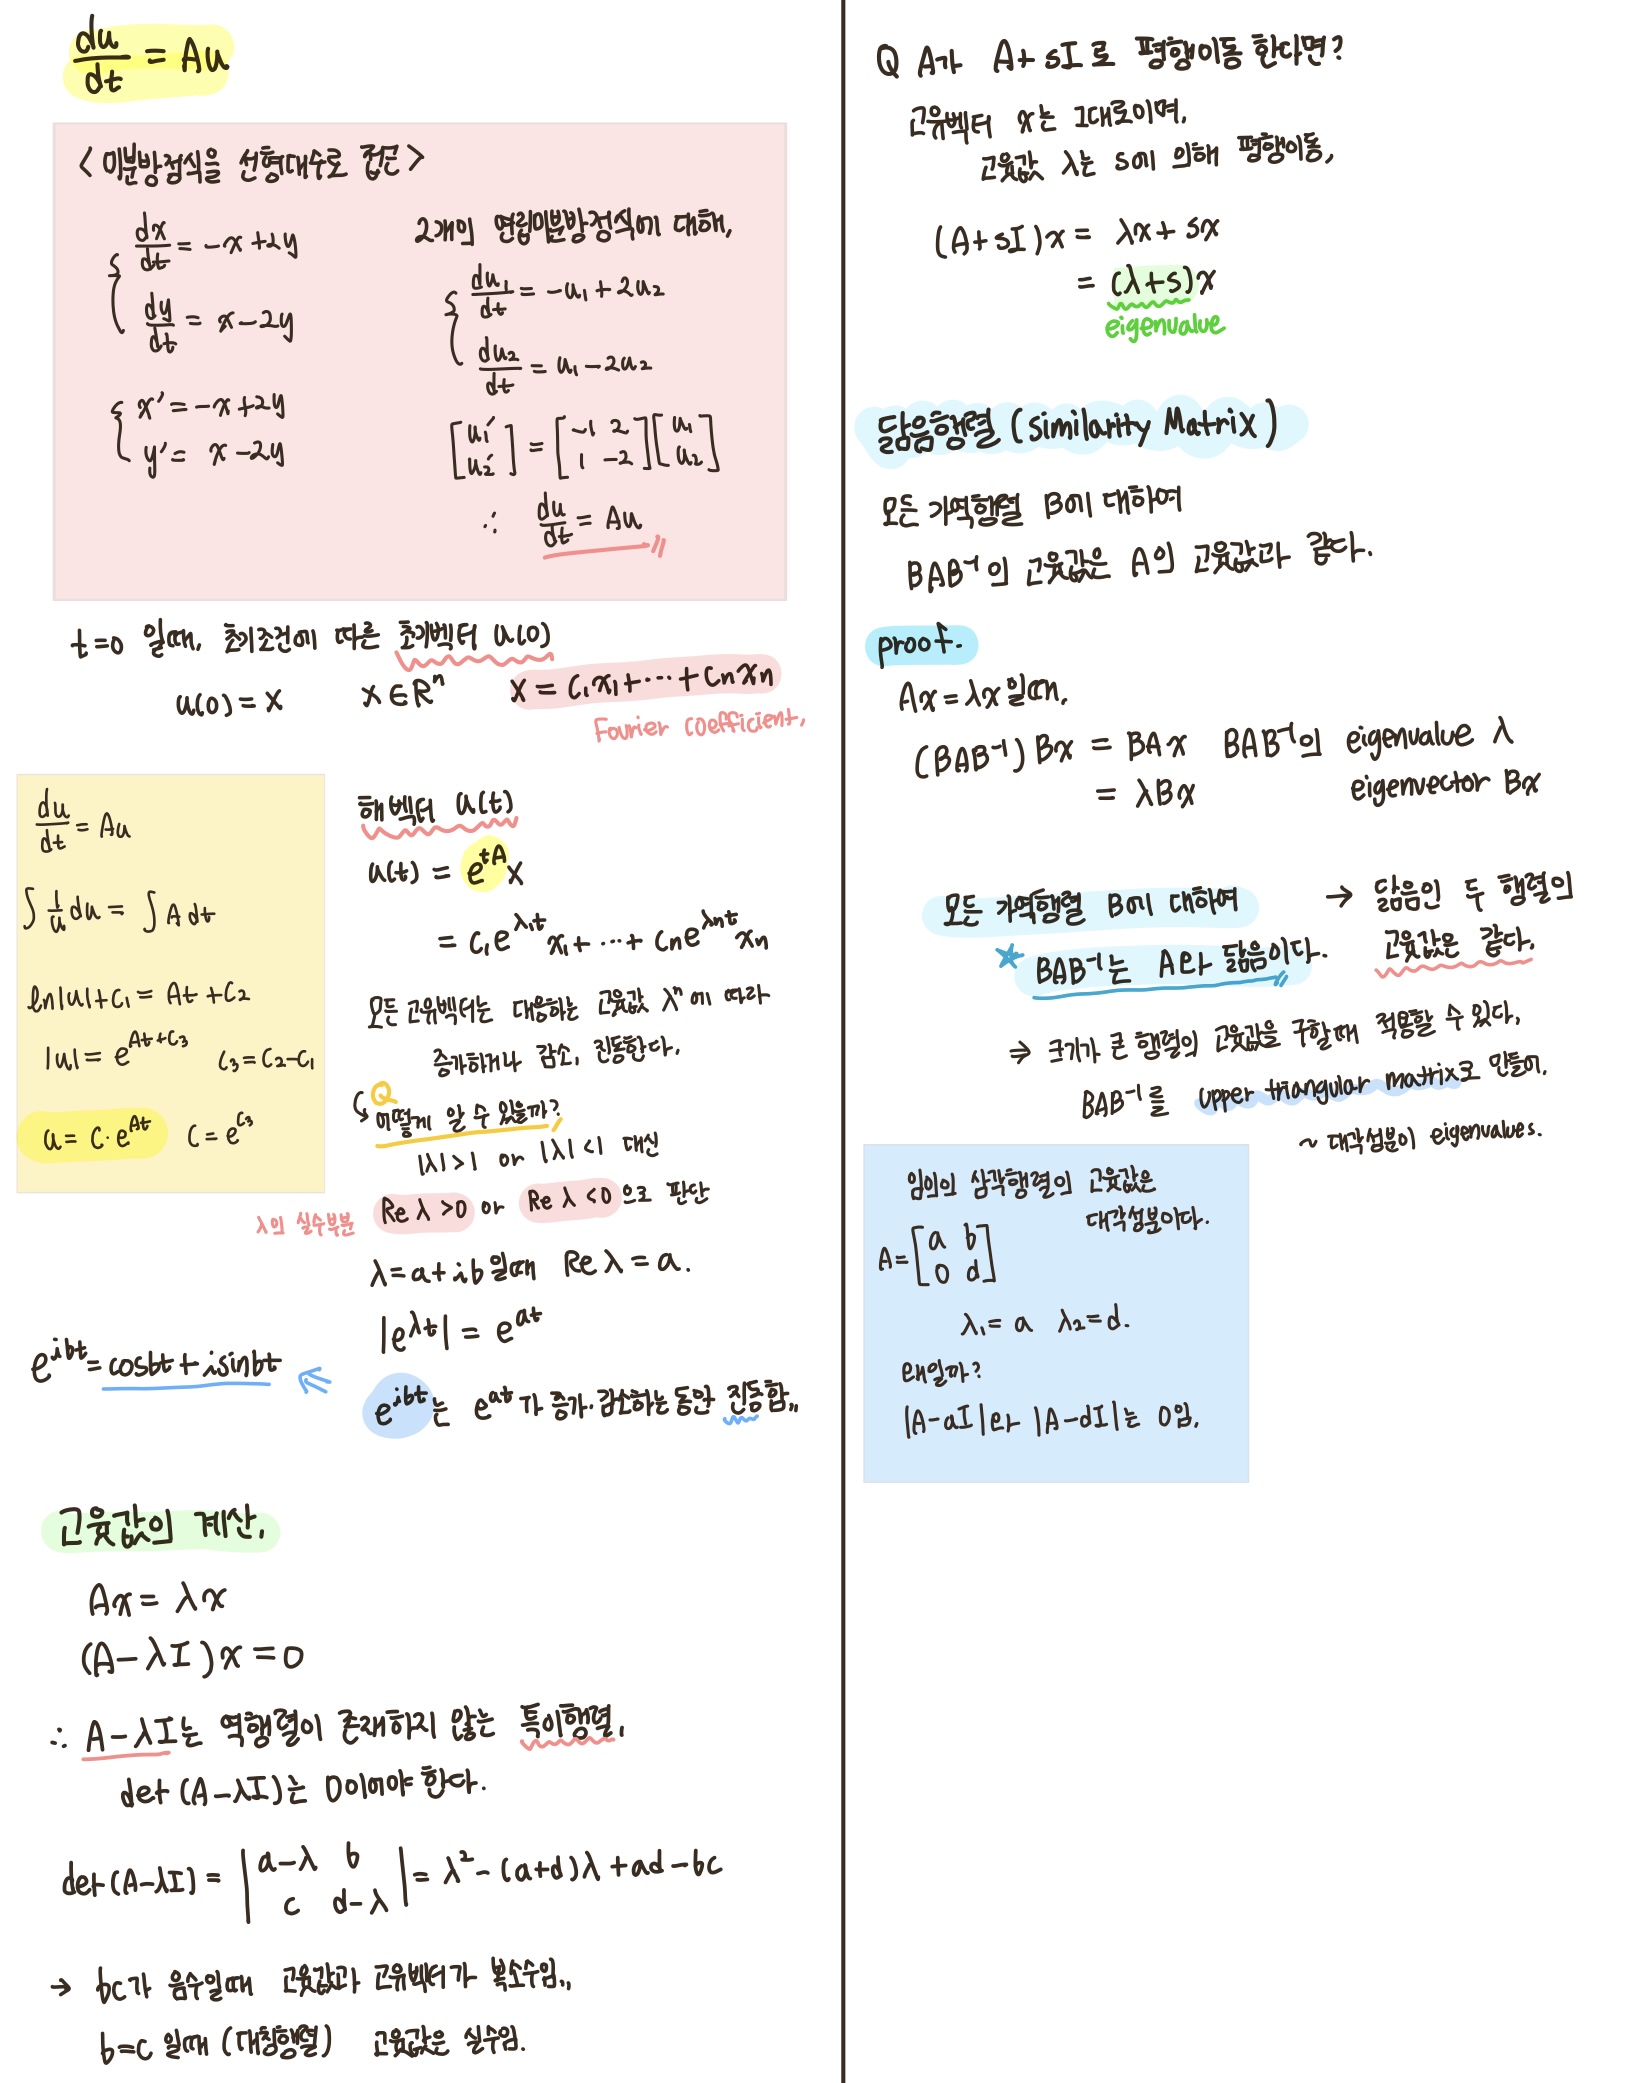 du/dt = Au
< 미분방정식을 선형대수로 접근 >
dx/dt = -x + 2y
dy/dt = x - 2y
x' = -x + 2y
y' = x - 2y
2개의 연립미분방정식에 대해,
du₁/dt = -u₁ + 2u₂
du₂/dt = u₁ - 2u₂
[u₁' u₂'] = [-1 2 1 -2][u₁ u₂]
∴ du/dt = Au
t=0 일때, 초기조건에 따른 초기벡터 u(0)
u(0) = x   x ∈ Rⁿ   x = c₁x₁ + ··· + cₙxₙ
Fourier coefficient,
du/dt = Au
∫ 1/u du = ∫ A dt
ln|u| + c₁ = At + c₂
|u| = e^(At+c₃)   c₃ = c₂ - c₁
u = c·e^(At)   c = e^(c₃)
해벡터 u(t)
u(t) = e^(tA) x
= c₁e^(λ₁t) x₁ + ··· + cₙe^(λₙt) xₙ
모든 고유벡터는 대응하는 고윳값 λⁿ에 따라
증가하거나 감소, 진동한다.
Q
↳ 어떻게 알 수 있을까?
|λ| > 1 or |λ| < 1 대신
λ의 실수부분 Re λ > 0 or Re λ < 0 으로 판단
λ = a + ib 일때 Re λ = a.
|e^(λt)| = e^(at)
e^(ibt) = cosbt + isinbt ⇐
e^(ibt)는 e^(at)가 증가·감소하는 동안 진동함.
고윳값의 계산.
Ax = λx
(A - λI)x = 0
∴ A - λI는 역행렬이 존재하지 않는 특이행렬.
det(A - λI)는 0이어야 한다.
det(A - λI) = |a-λ b c d-λ| = λ² - (a+d)λ + ad - bc
→ bc가 음수일때 고윳값과 고유벡터가 복소수임.
b=c 일때 (대칭행렬) 고윳값은 실수임.
Q A가 A + sI 로 평행이동 한다면?
고유벡터 x는 그대로이며,
고윳값 λ는 s에 의해 평행이동,
(A + sI)x = λx + sx
= (λ+s)x
eigenvalue
닮음행렬 (similarity Matrix)
모든 가역행렬 B에 대하여
BAB⁻¹의 고윳값은 A의 고윳값과 같다.
proof.
Ax = λx 일때,
(BAB⁻¹)Bx = BAx   BAB⁻¹의 eigenvalue λ
= λBx   eigenvector Bx
모든 가역행렬 B에 대하여 → 닮음인 두 행렬의
★ BAB⁻¹는 A와 닮음이다. 고윳값은 같다.
⇒ 크기가 큰 행렬의 고윳값을 구할때 적용할 수 있다,
BAB⁻¹를 upper triangular matrix로 만들어,
~ 대각성분이 eigenvalues.
임의의 삼각행렬의 고윳값은
대각성분이다.
A = [a b 0 d]
λ₁ = a   λ₂ = d.
왜일까?
|A - aI|와 |A - dI|는 0임.